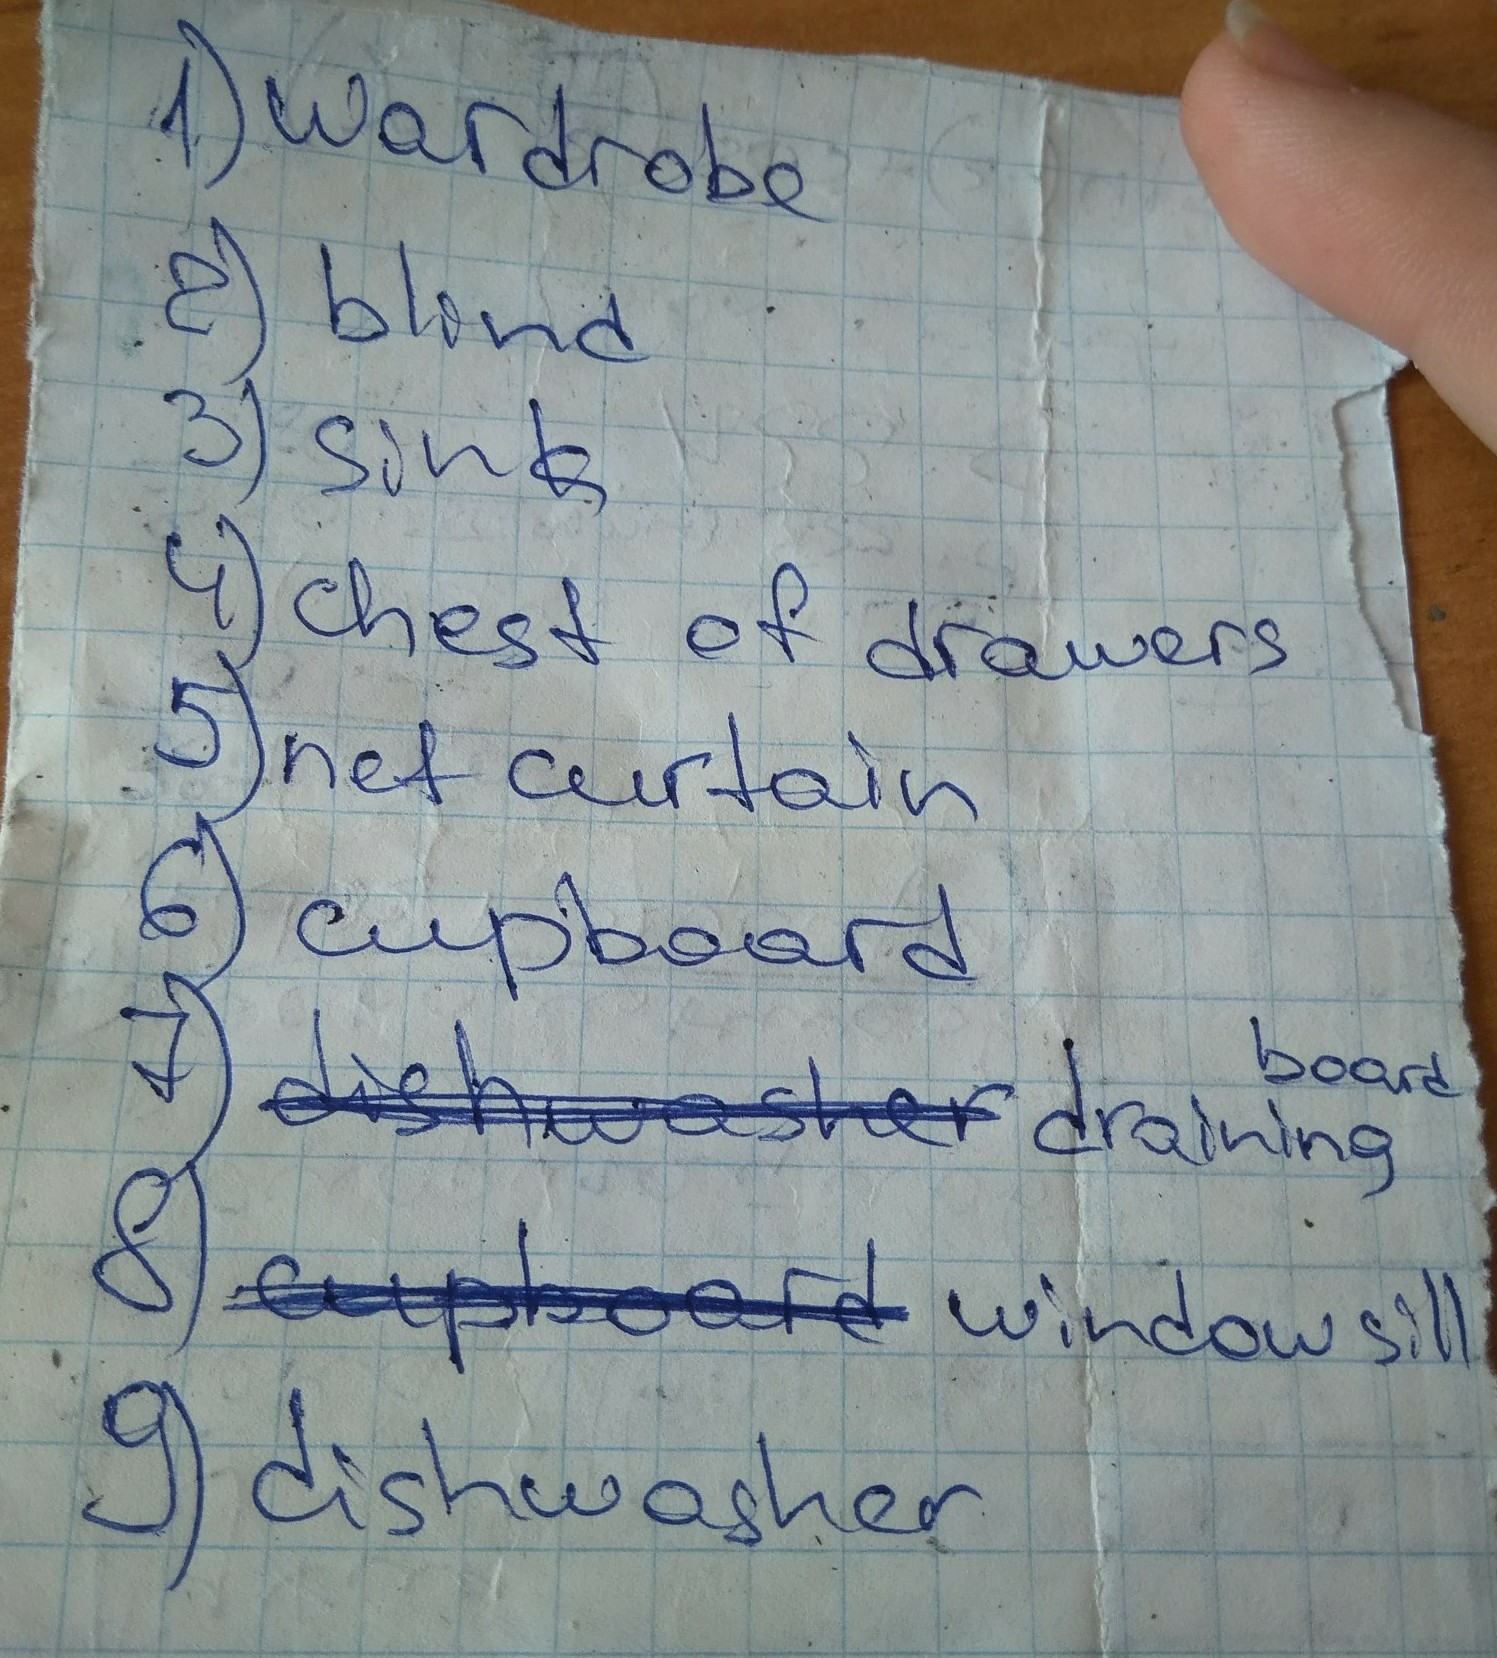 1) wardrobe
2) blind
3) sink
4) chest of drawers
5) net curtain
6) cupboard
7) dishwasher draining board
8) cupboard window sill
9) dishwasher